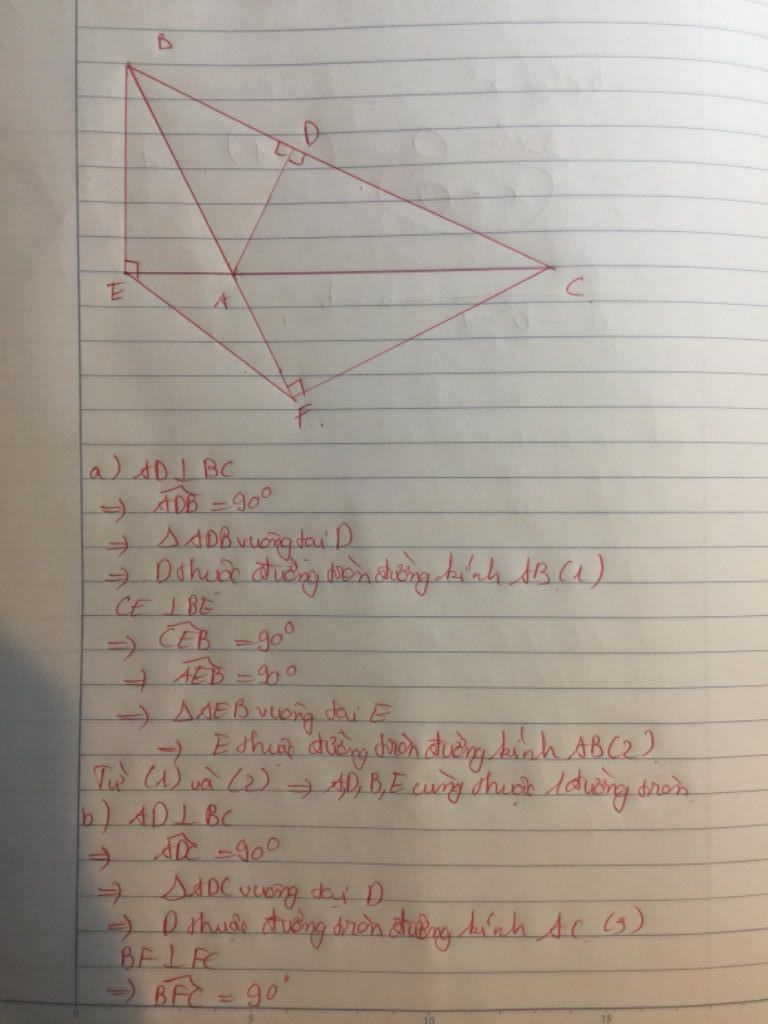 B
D
E
A
C
F
a) AD ⊥ BC
=> \widehat{ADB} = 90°
=> Δ ADB vuông tại D
=> D thuộc đường tròn đường kính AB (1)
CE ⊥ BE
=> \widehat{CEB} = 90°
=> \widehat{AEB} = 90°
=> ΔAEB vuông tại E
=> E thuộc đường tròn đường kính AB (2)
Từ (1) và (2) => A,D,B,E cùng thuộc 1 đường tròn
b) AD ⊥ BC
=> \widehat{ADC} = 90°
=> ΔADC vuông tại D
=> D thuộc đường tròn đường kính AC (3)
BF ⊥ FC
=> \widehat{BFC} = 90°
0 5 10 15